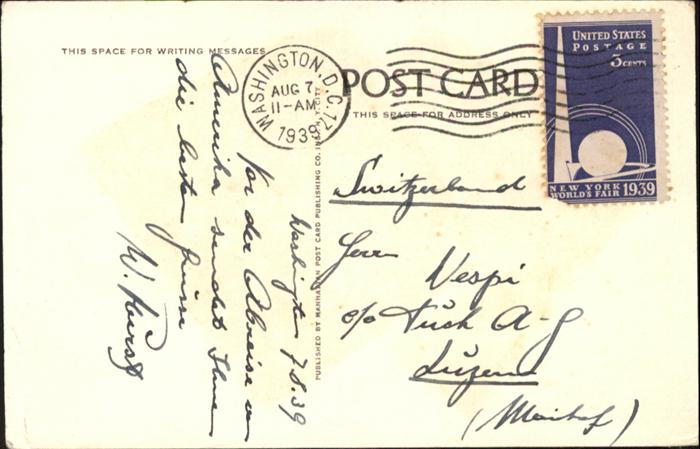 THIS SPACE FOR WRITING MESSAGES
Washington 7.8.39
Vor der Abreise von
Amerika sendet Ihnen
die besten Grüsse
W.
WASHINGTON, D.C. 17
AUG 7
11-AM
1939
POST CARD
THIS SPACE FOR ADDRESS ONLY
PUBLISHED BY MANHATTAN POST CARD PUBLISHING CO. INC., N.Y. CITY
UNITED STATES
POSTAGE
3 CENTS
NEW YORK
WORLD'S FAIR 1939
Switzerland
Herr
Vespi
c/o Tuch A-G
Luzern
(Maihof)